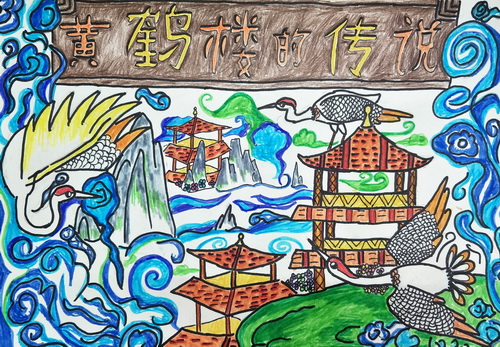 黄鹤楼的传说